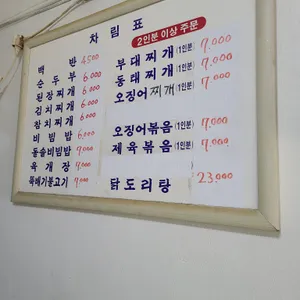 차림표
2인분 이상 주문
백반 4500
순두부 6,000
된장찌개 6,000
김치찌개 6,000
참치찌개 6,000
비빔밥 6,000
돌솥비빔밥 7,000
육개장 7,000
뚝배기불고기 7,000
부대찌개 (1인분) 7,000
동태찌개 (1인분) 7,000
오징어찌개 (1인분)
오징어볶음 (1인분) 7,000
제육볶음 (1인분) 7,000
닭도리탕 23,000